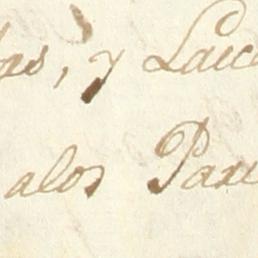 as, y Laic
alos Par